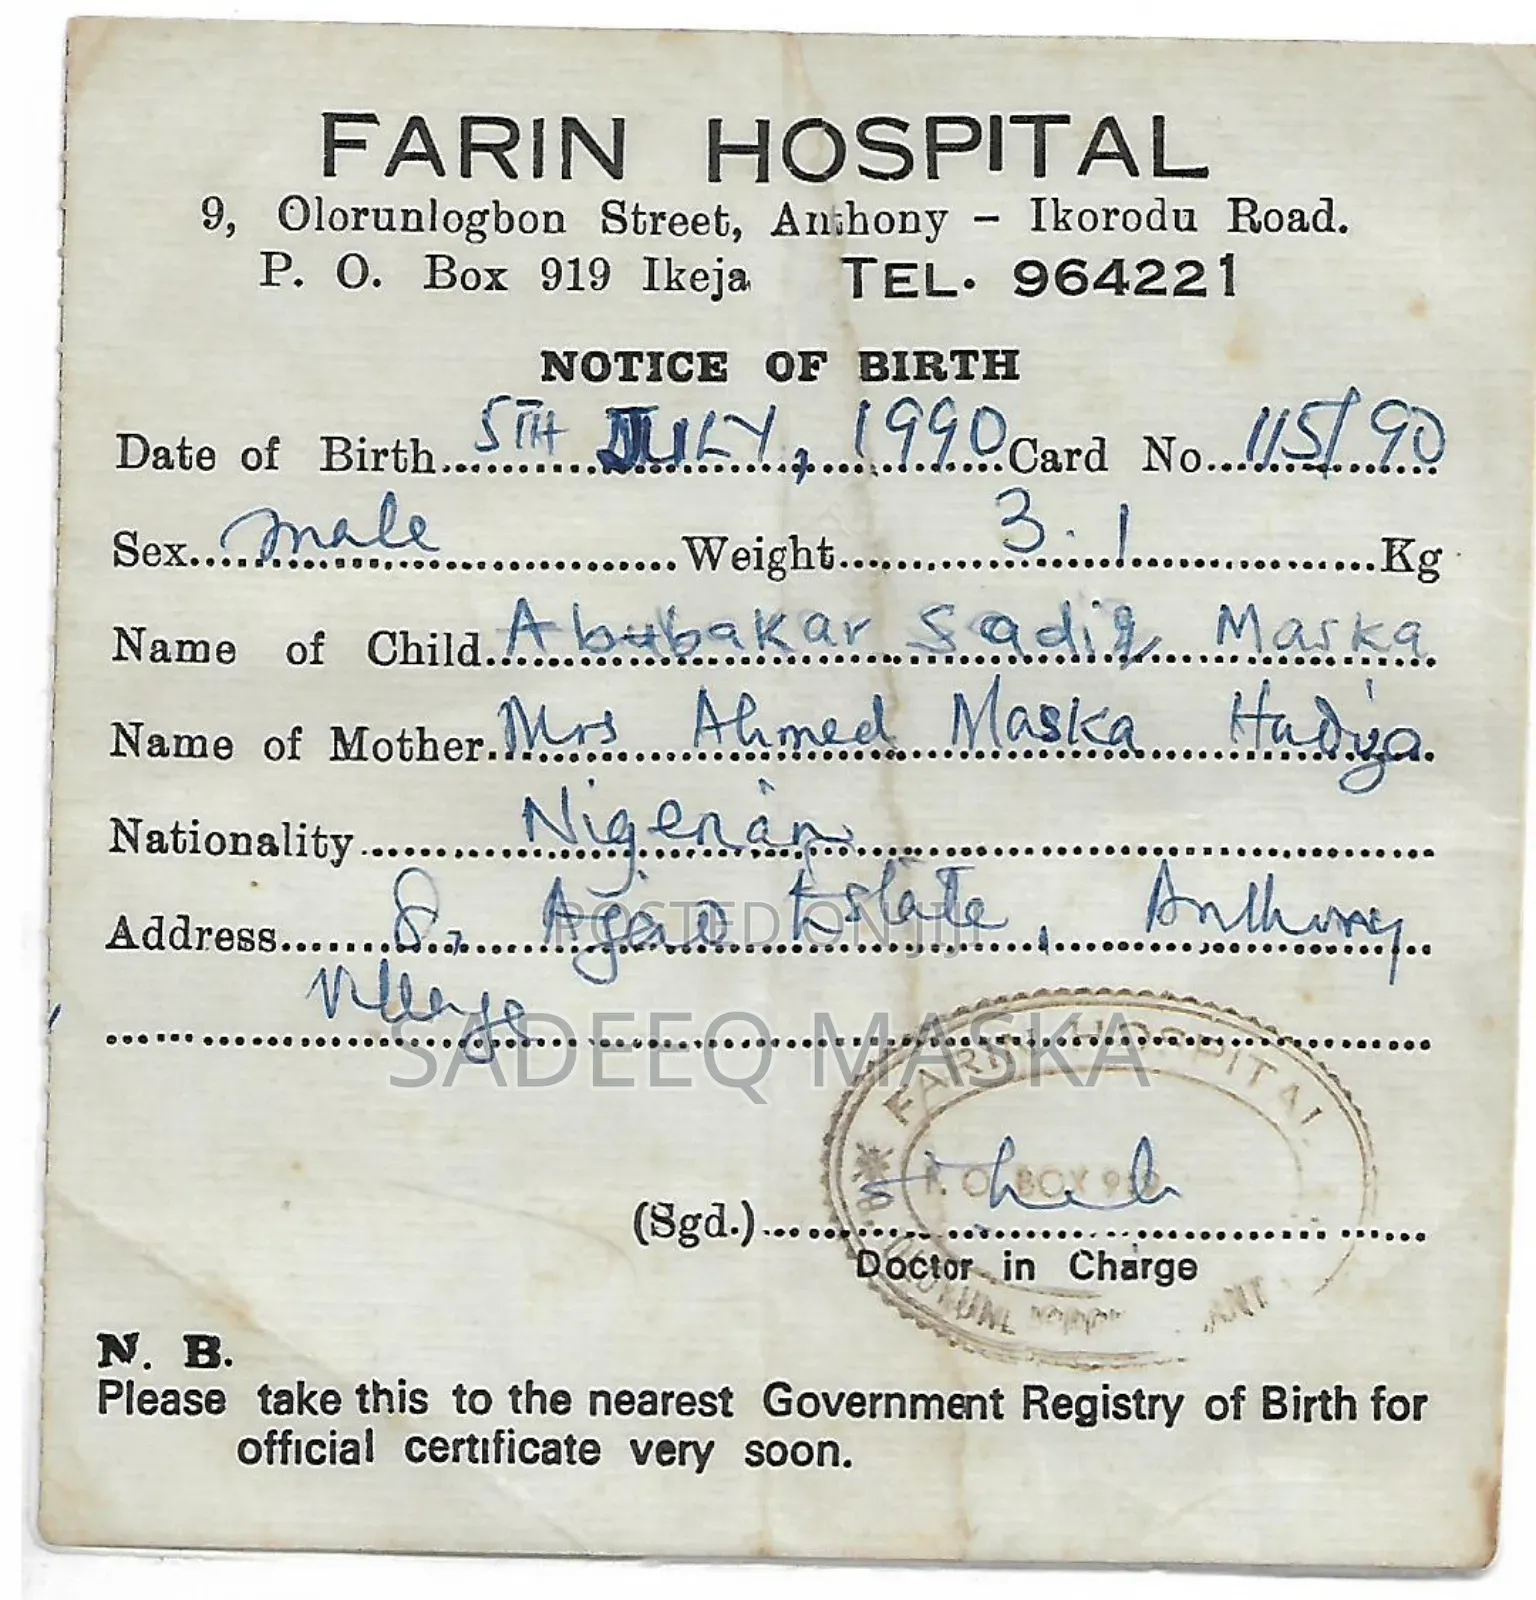 FARIN HOSPITAL
9, Olorunlogbon Street, Anthony – Ikorodu Road.
P. O. Box 919 Ikeja TEL. 964221
NOTICE OF BIRTH
Date of Birth 5TH JULY, 1990 Card No. 115/90
Sex male Weight 3.1 Kg
Name of Child Abubakar Sadiq Maska
Name of Mother Mrs Ahmed Maska Hadiya
Nationality Nigerian
Address 8, Ajao Estate, Anthony
Village
POSTED ON JIJI
SADEEQ MASKA
FARIN HOSPITAL
P.O. BOX 919
(Sgd.)
Doctor in Charge
N. B.
Please take this to the nearest Government Registry of Birth for
official certificate very soon.